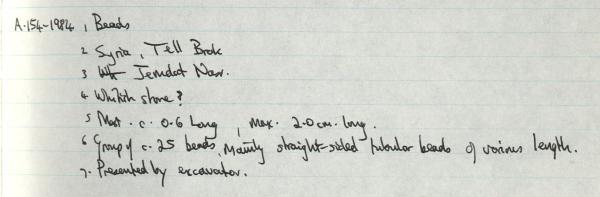 A.154-1984 1 Beads
2 Syria, Tell Brak
3 Jemdat Nasr.
4 Whitish stone?
5 Most. c. 0.6 long, max. 2.0 cm. long.
6 Group of c. 25 beads, mainly straight-sided tubular beads of various length.
7. Presented by excavator.